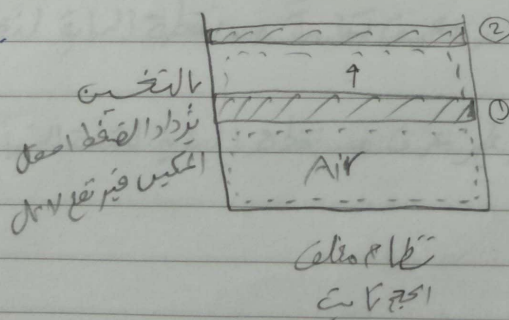 ②
بالتخين
①
يزداد الضغط اسفل
المكبس فيرتفع لأعلى
Air
نظام مغلق